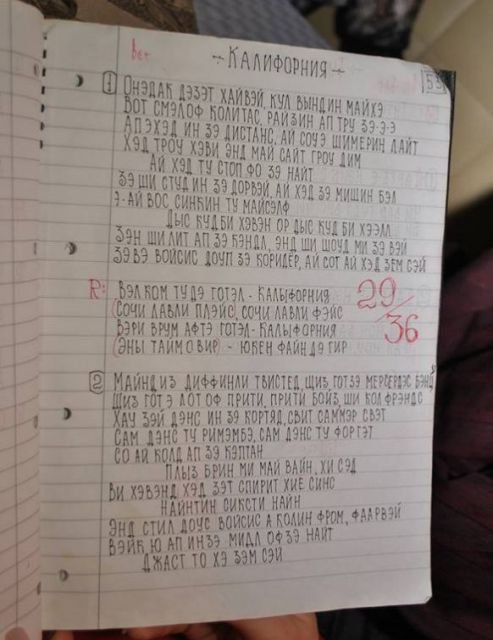 - КАЛИФОРНИЯ -
1 ОНЭДАК ДЭЗЭТ ХАЙВЭЙ, КУЛ ВЫНДИН МАЙХЭ
ВОТ СМЭЛОФ КОЛИТАС, РАЙЗИН АП ТРУ ЗЭ-Э-Э
АПЭХЭД ИН ЗЭ ДИСТАНС, АЙ СОУЭ ШИМЕРИН ЛАЙТ
ХЭД ТРОУ ХЭВИ ЭНД МАЙ САЙТ ГРОУ ДИМ
АЙ ХЭД ТУ СТОП ФО ЗЭ НАЙТ
ЗЭ ШИ СТУД ИН ЗЭ ДОРВЭЙ, АЙ ХЭД ЗЭ МИШИН БЭЛ
Э-АЙ ВОС СИНКИН ТУ МАЙСЭЛФ
ДЫС КУДБИ ХЭВЭН ОР ДЫС КУД БИ ХЭЭЛЛ
ЗЭН ШИ ЛИТ АП ЗЭ КЭНДЛ, ЭНД ШИ ШОУД МИ ЗЭ ВЭЙ
ЗЭВЭ ВОЙСИС ДОУП ЗЭ КОРИДЕР, АЙ СОТ АЙ ХЭД ЗЕМ СЭЙ
R: ВЭЛКОМ ТУ ДЭ ГОТЭЛ - КАЛЫФОРНИЯ
(СОЧИ ЛАВЛИ ПЛЭЙС), СОЧИ ЛАВЛИ ФЭЙС
ВЭРИ ВРУМ АФТЭ ГОТЭЛ - КАЛЫФОРНИЯ
(ЭНЫ ТАЙМ О ВИР) - ЮКЕН ФАЙН ДЭ ГИР
29/36
2 МАЙНД ИЗ ДИФФИНЛИ ТВИСТЕД, ШИЗ ГОТЗЭ МЕРСЕРДЭС БЭНЦ
ШИЗ ГОТ Э ЛОТ ОФ ПРИТИ, ПРИТИ БОЙЗ, ШИ КОЛ ФРЭНДС
ХАУ ЗЭЙ ДЭНС ИН ЗЭ КОРТЯД, СВИТ САММЭР СВЭТ
САМ ДЭНС ТУ РИМЭМБЭ, САМ ДЭНС ТУ ФОРГЭТ
СО АЙ КОЛД АП ЗЭ КЭПТАН
ПЛЫЗ БРИН МИ МАЙ ВАЙН, ХИ СЭД
ВИ ХЭВЭНД ХЭД ЗЭТ СПИРИТ ХИЕ СИНС
НАЙНТИН СИКСТИ НАЙН
ЭНД СТИЛ ДОУС ВОЙСИС А КОЛИН ФРОМ, ФААРВЭЙ
ВЭЙК Ю АП ИН ЗЭ МИДЛ ОФ ЗЭ НАЙТ
ДЖАСТ ТО ХЭ ЗЭМ СЭЙ